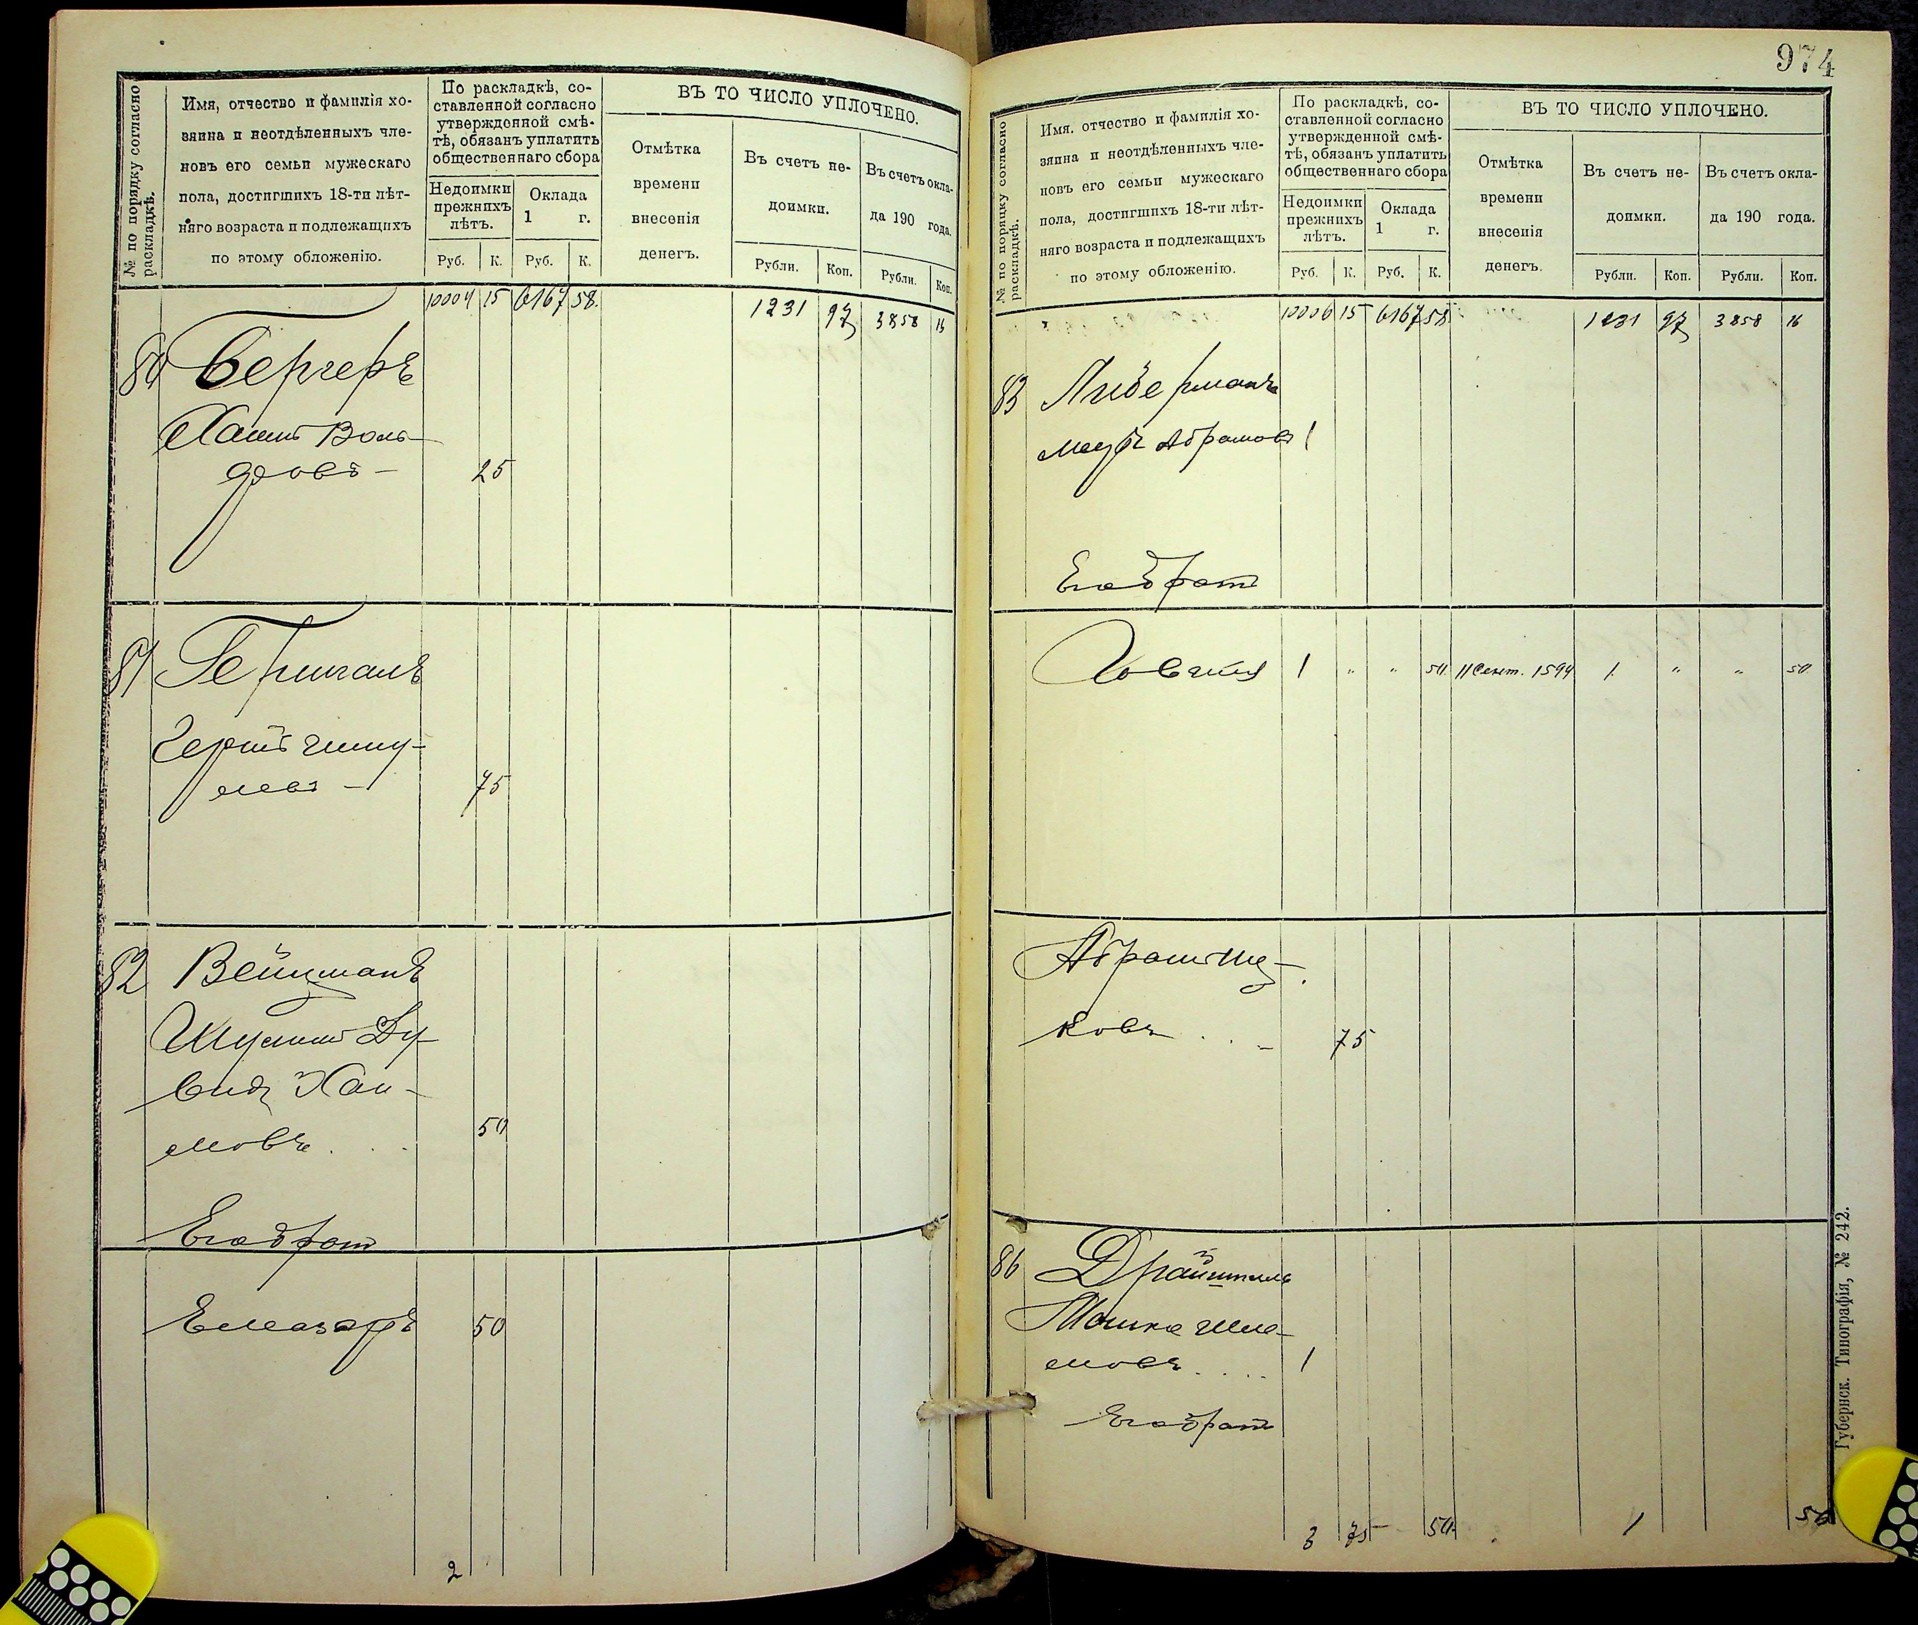 № по порядку согласно раскладкѣ.
Имя, отчество и фамилія хо-
зяина и неотдѣленныхъ чле-
новъ его семьи мужескаго
пола, достигшихъ 18-ти лѣт-
няго возраста и подлежащихъ
по этому обложенію.
По раскладкѣ, со-
ставленной согласно
утвержденной смѣ-
тѣ, обязанъ уплатить
общественнаго сбора
Недоимки
прежнихъ
лѣтъ.
Оклада
1 г.
Руб. К. Руб. К.
ВЪ ТО ЧИСЛО УПЛОЧЕНО.
Отмѣтка
времени
внесенія
денегъ.
Въ счетъ не-
доимки.
Въ счетъ окла-
да 190 года.
Рубли. Коп. Рубли. Коп.
10004 15 6167 58. 1231 97 3858 16
80 Бергеръ
Хаимъ Воль-
фовъ - 25
81 Гершгалъ
75
82 Вейцманъ
Шулимъ Ду-
видъ Хаи-
мовъ . . . 50
Его братъ
Елеазаръ 50
2
974
№ по порядку согласно раскладкѣ.
Имя. отчество и фамилія хо-
зяина и неотдѣленныхъ чле-
новъ его семьи мужескаго
пола, достигшихъ 18-ти лѣт-
няго возраста и подлежащихъ
по этому обложенію.
По раскладкѣ, со-
ставленной согласно
утвержденной смѣ-
тѣ, обязанъ уплатить
общественнаго сбора
Недоимки
прежнихъ
лѣтъ.
Оклада
1 г.
Руб. К. Руб. К.
ВЪ ТО ЧИСЛО УПЛОЧЕНО.
Отмѣтка
времени
внесенія
денегъ.
Въ счетъ не-
доимки.
Въ счетъ окла-
да 190 года.
Рубли. Коп. Рубли. Коп.
10006 15 6167 58 1231 97 3858 16
83 Либерманъ
Мееръ Абрамовъ 1
Его братъ
1 " " 50. 11 Сент. 1594 1. " " 50
Абрамъ
ковъ . . - 75
86
Мошко Шле-
мовъ . . . . 1
Его братъ
3 75 50. 1 50
Губернск. Типографія, № 242.